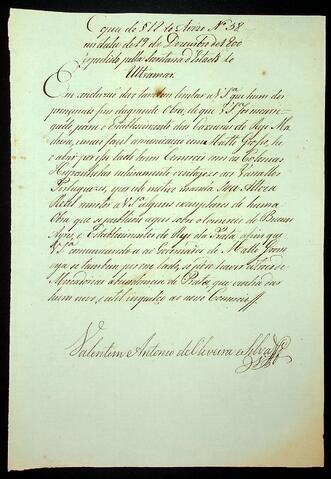 Copia do § 12 do Aviso Nº 58
em data de 19 de Dezembro de 1800
expedido pella Secretaria d'Estado do
Ultramar.
Em anderei dar tambem lembrar a V.Sª que hum dos
principais fins da grande Obra, de que V.Sª foi encarre-
gado para o Estabelecimento das Caxoeiras do Rio Ma-
deira, e mais façeis comunicaçoens com Matto Grosso, he
o abrir por esse lado hum Comercio com as Colonias
Hespanholas summamente ventajozo aos Vassallos
Portuguezes, por este motivo manda Sua Alteza
Real remeter a V.Sª alguns exemplares de huma
Obra que se publicou agora sobre o Comercio de Buenos
Ayres, e Estabelecimentos do Rio da Prata, afim que
V.Sª communicando-a ao Governador de Matto Grosso
veja se tambem por esse lado, se pode haver extracção de
Mercadorias abundancia de Prata, que venha dar
hum novo, e util impulço ao nosso Comercio //
Valentim Antonio de Oliveira e Silva